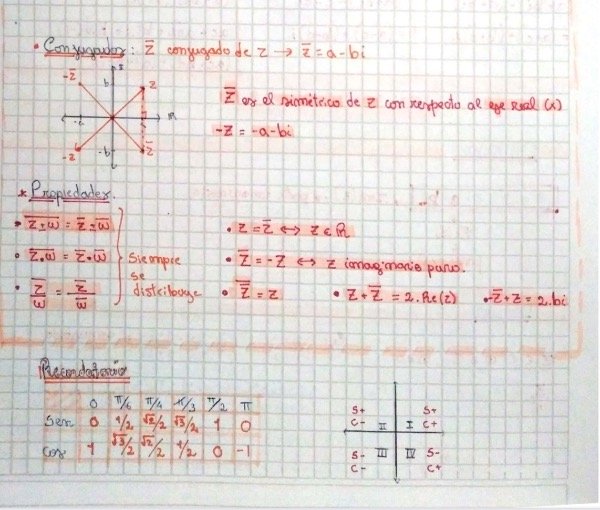 • Conjugados: z̅ conjugado de z → z̅ = a - bi
-z̅ b I z
-a R
-z -b z̅
z̅ es el simétrico de z con respecto al eje real (x)
-z = -a - bi
* Propiedades.
• \overline{z±w} = z̅ ± w̅
• \overline{z.w} = z̅ . w̅
• \overline{\frac{z}{w}} = \frac{z̅}{w̅}
Siempre
se
distribuye
• z = z̅ ↔ z ∈ R
• z̅ = -z ↔ z imaginario puro.
• \overline{z̅} = z • z + z̅ = 2.Re(z) • -z̅ + z = 2.bi
Recordatorio
0 π/6 π/4 π/3 π/2 π
sen 0 1/2 √2/2 √3/2 1 0
cos 1 √3/2 √2/2 1/2 0 -1
S+ S+
C- II I C+
S- III IV S-
C- C+